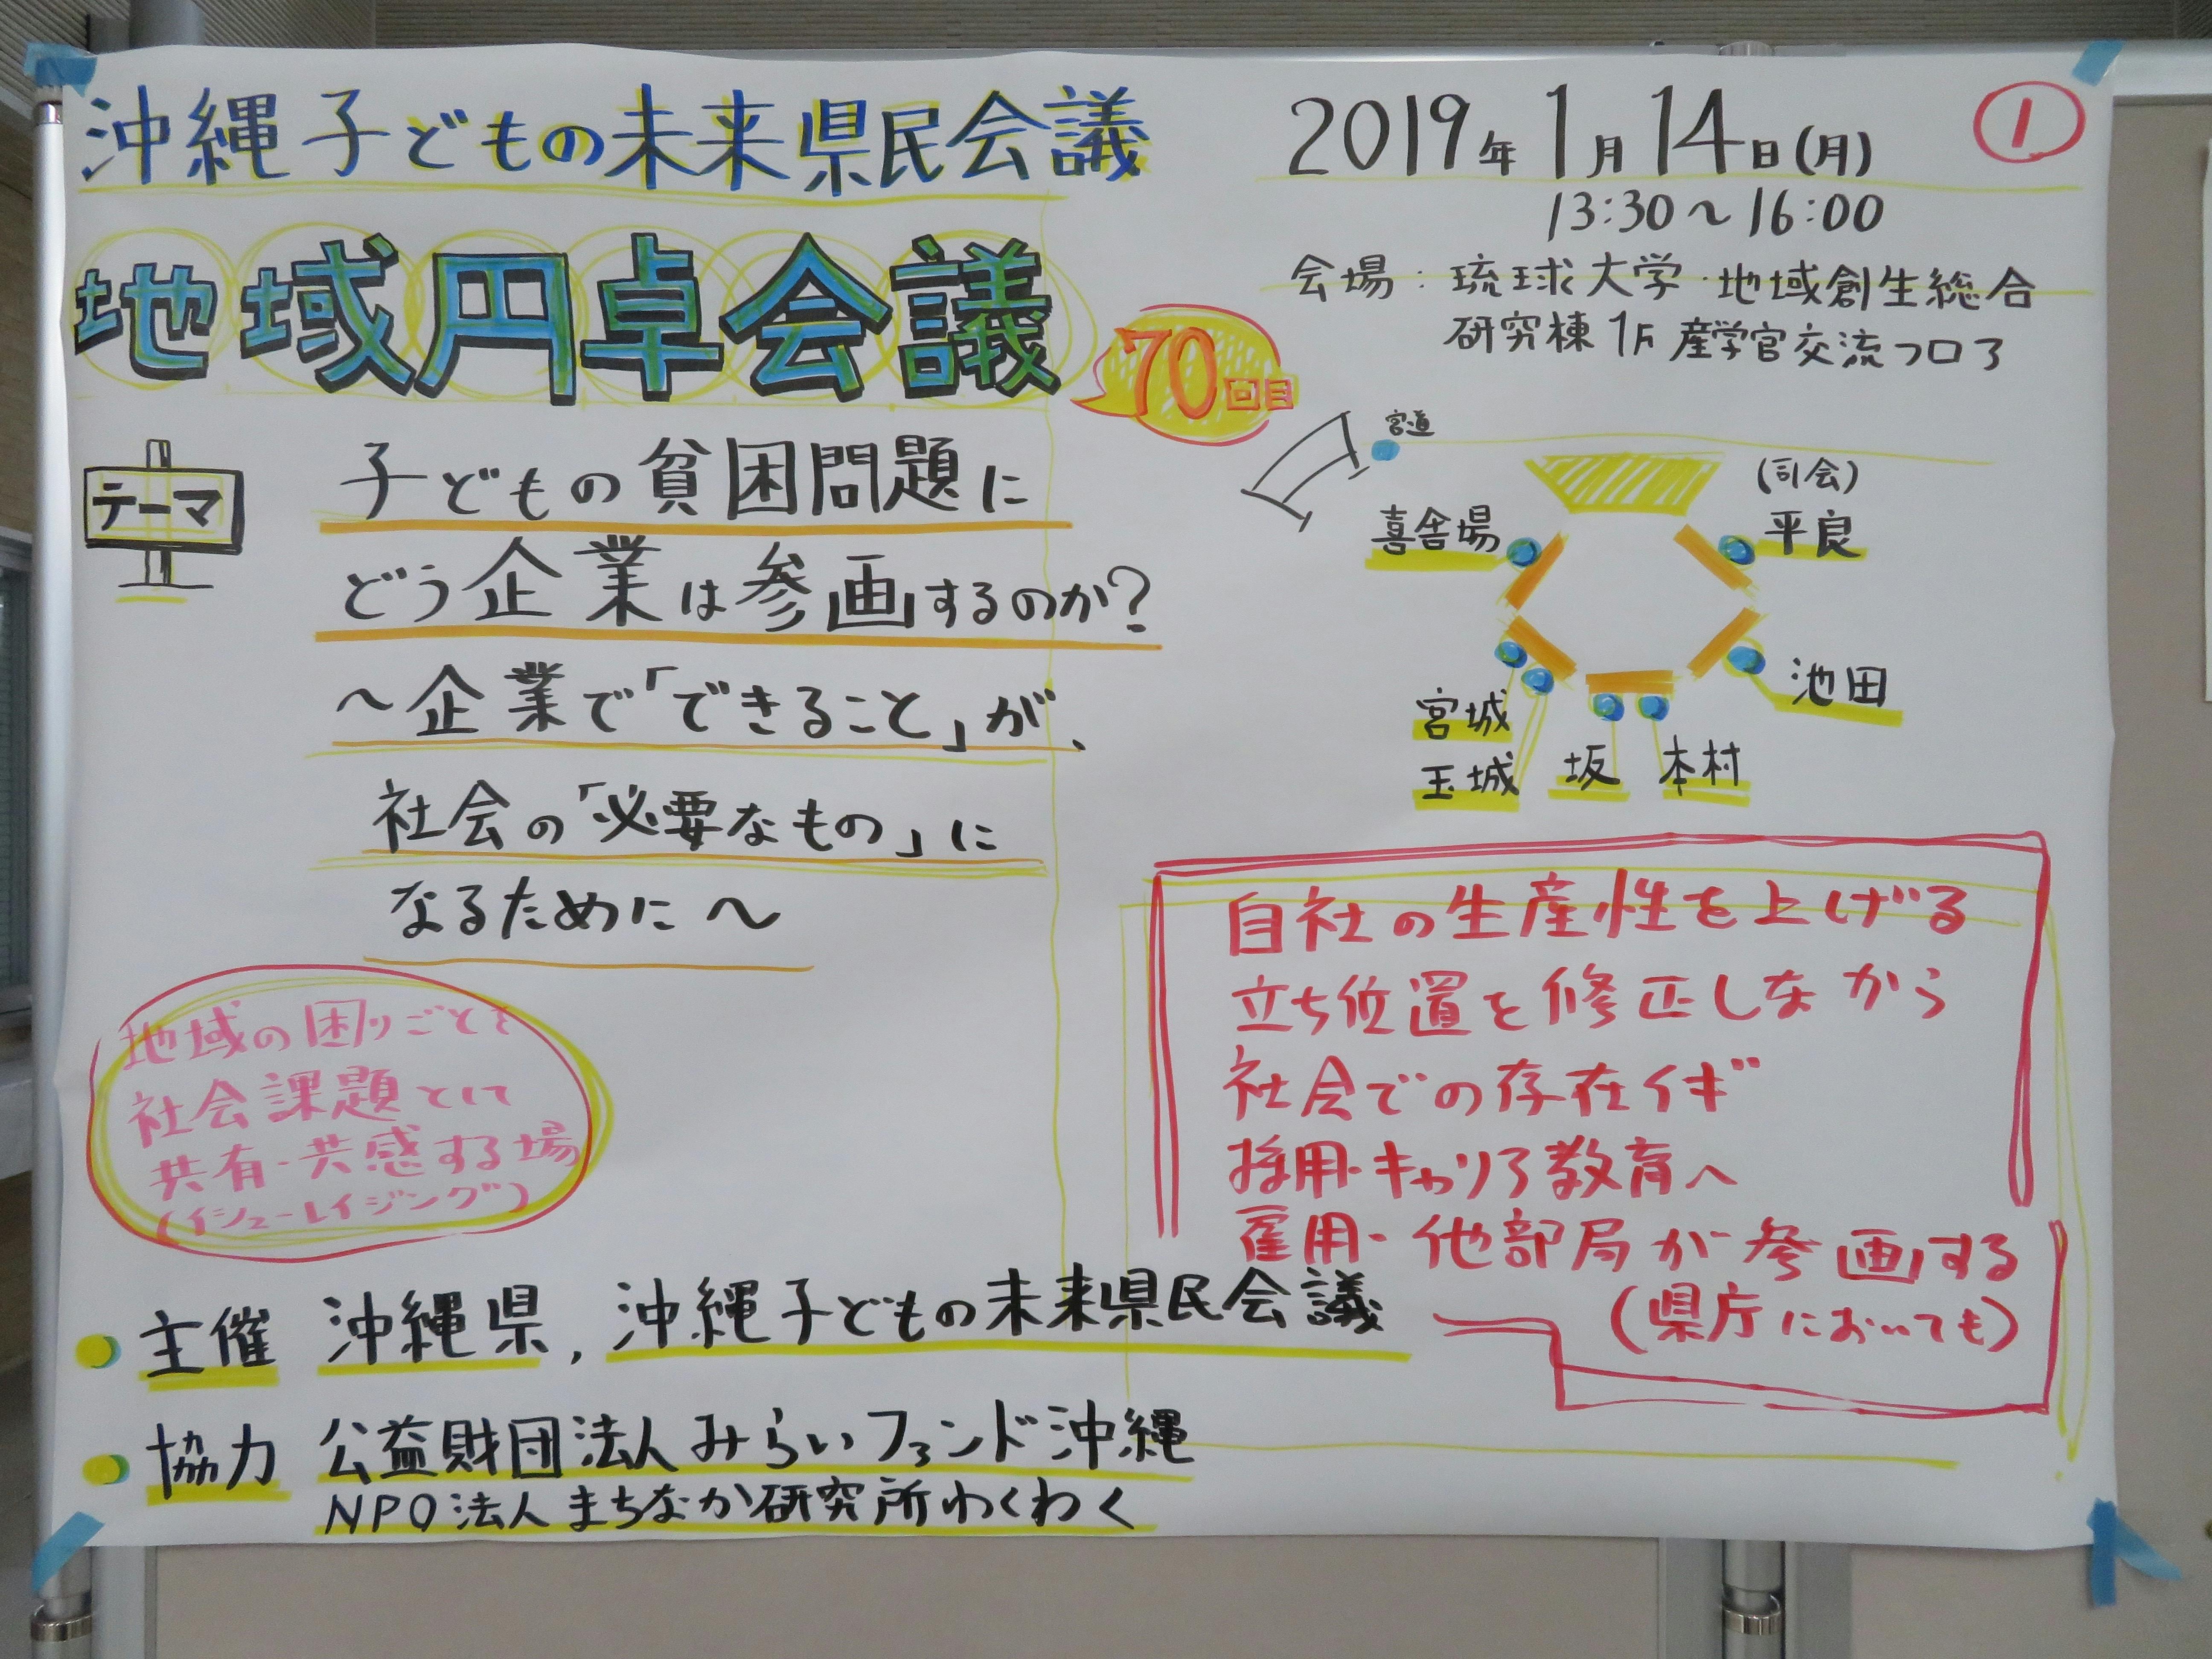 沖縄子どもの未来県民会議
地域円卓会議
70回目
2019年1月14日(月)
①
13:30〜16:00
会場：琉球大学・地域創生総合
研究棟1F産学官交流フロア
テーマ
子どもの貧困問題に
どう企業は参画するのか?
〜企業で「できること」が、
社会の「必要なもの」に
なるために〜
宮道
(司会)
平良
喜舎場
池田
宮城
玉城
坂
本村
地域の困りごとを
社会課題として
共有・共感する場
(イシューレイジング)
自社の生産性を上げる
立ち位置を修正しながら
社会での存在イギ
採用・キャリア教育へ
雇用・他部局が参画する
(県庁においても)
主催 沖縄県, 沖縄子どもの未来県民会議
協力 公益財団法人みらいファンド沖縄
NPO法人まちなか研究所わくわく